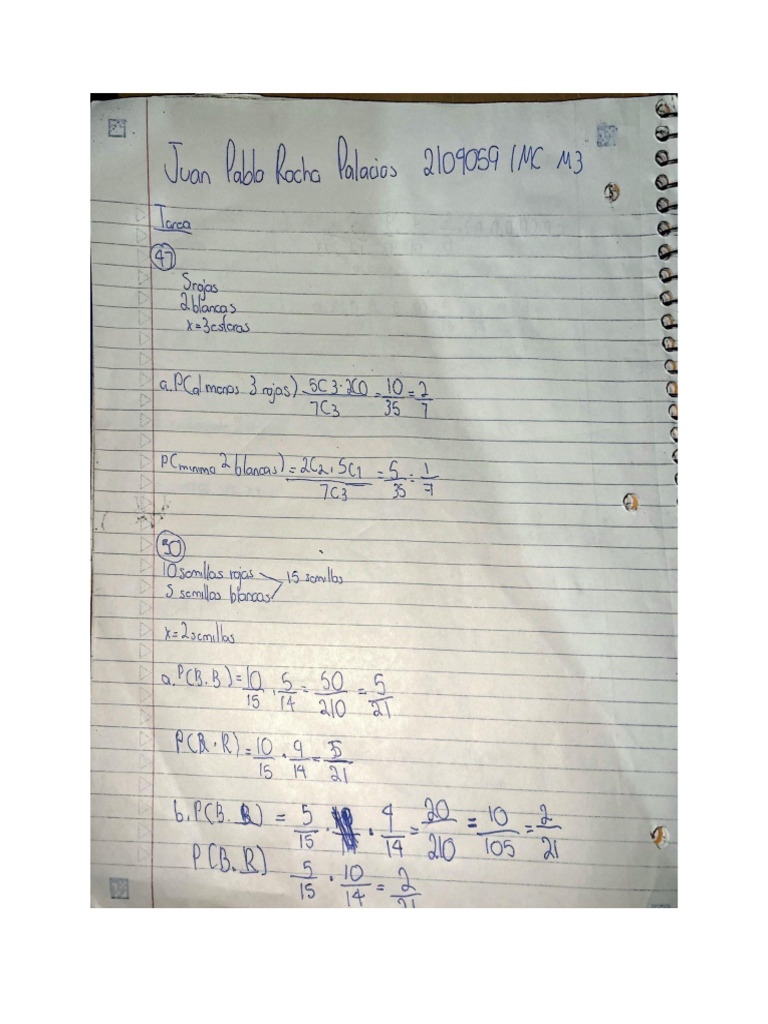 Juan Pablo Rocha Palacios 2109059 IMC M3
Tarea
47
5 rojas
2 blancas
x=3 esferas
a. P(al menos 3 rojas) 5C3·2C0/7C3 = 10/35 = 2/7
P(minimo 2 blancas) = 2C2·5C1/7C3 = 5/35 = 1/7
50
10 semillas rojas
15 semillas
5 semillas blancas
x=2 semillas
a. P(B.B) = 10/15 · 5/14 = 50/210 = 5/21
P(R·R) = 10/15 · 9/14 = 5/21
b. P(B. B) = 5/15 · 4/14 = 20/210 = 10/105 = 2/21
P(B.R) 5/15 · 10/14 = 2/21